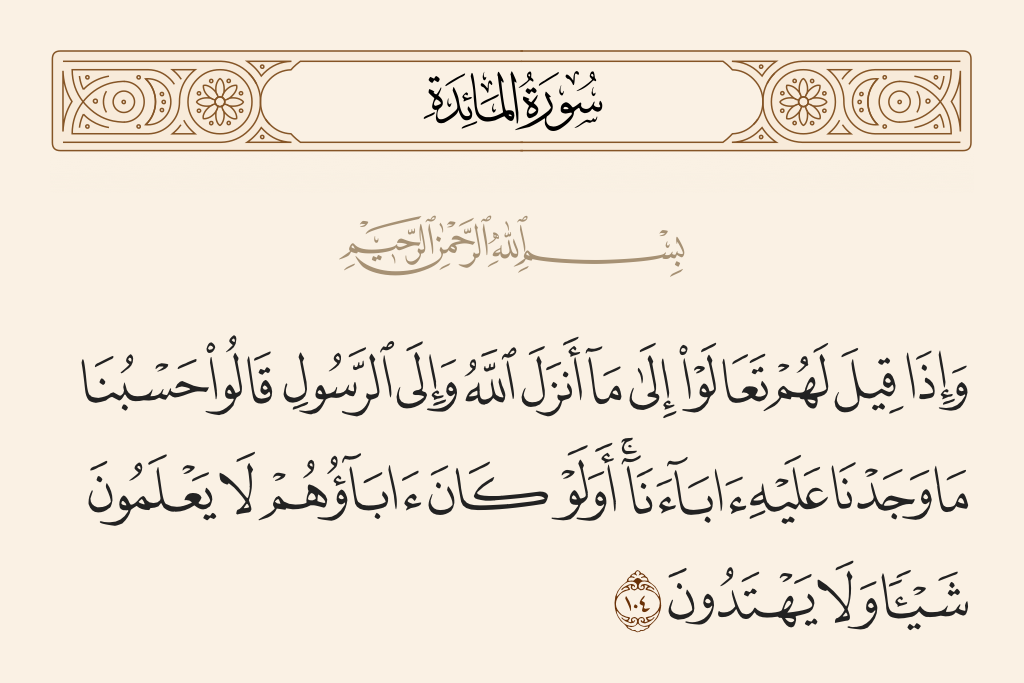 سُورَةُ المَائِدَةِ
بِسْمِ ٱللَّهِ ٱلرَّحْمَٰنِ ٱلرَّحِيمِ
وَإِذَا قِيلَ لَهُمْ تَعَالَوْا۟ إِلَىٰ مَآ أَنزَلَ ٱللَّهُ وَإِلَى ٱلرَّسُولِ قَالُوا۟ حَسْبُنَا
مَا وَجَدْنَا عَلَيْهِ ءَابَآءَنَآ ۚ أَوَلَوْ كَانَ ءَابَآؤُهُمْ لَا يَعْلَمُونَ
شَيْـًٔا وَلَا يَهْتَدُونَ ١٠٤